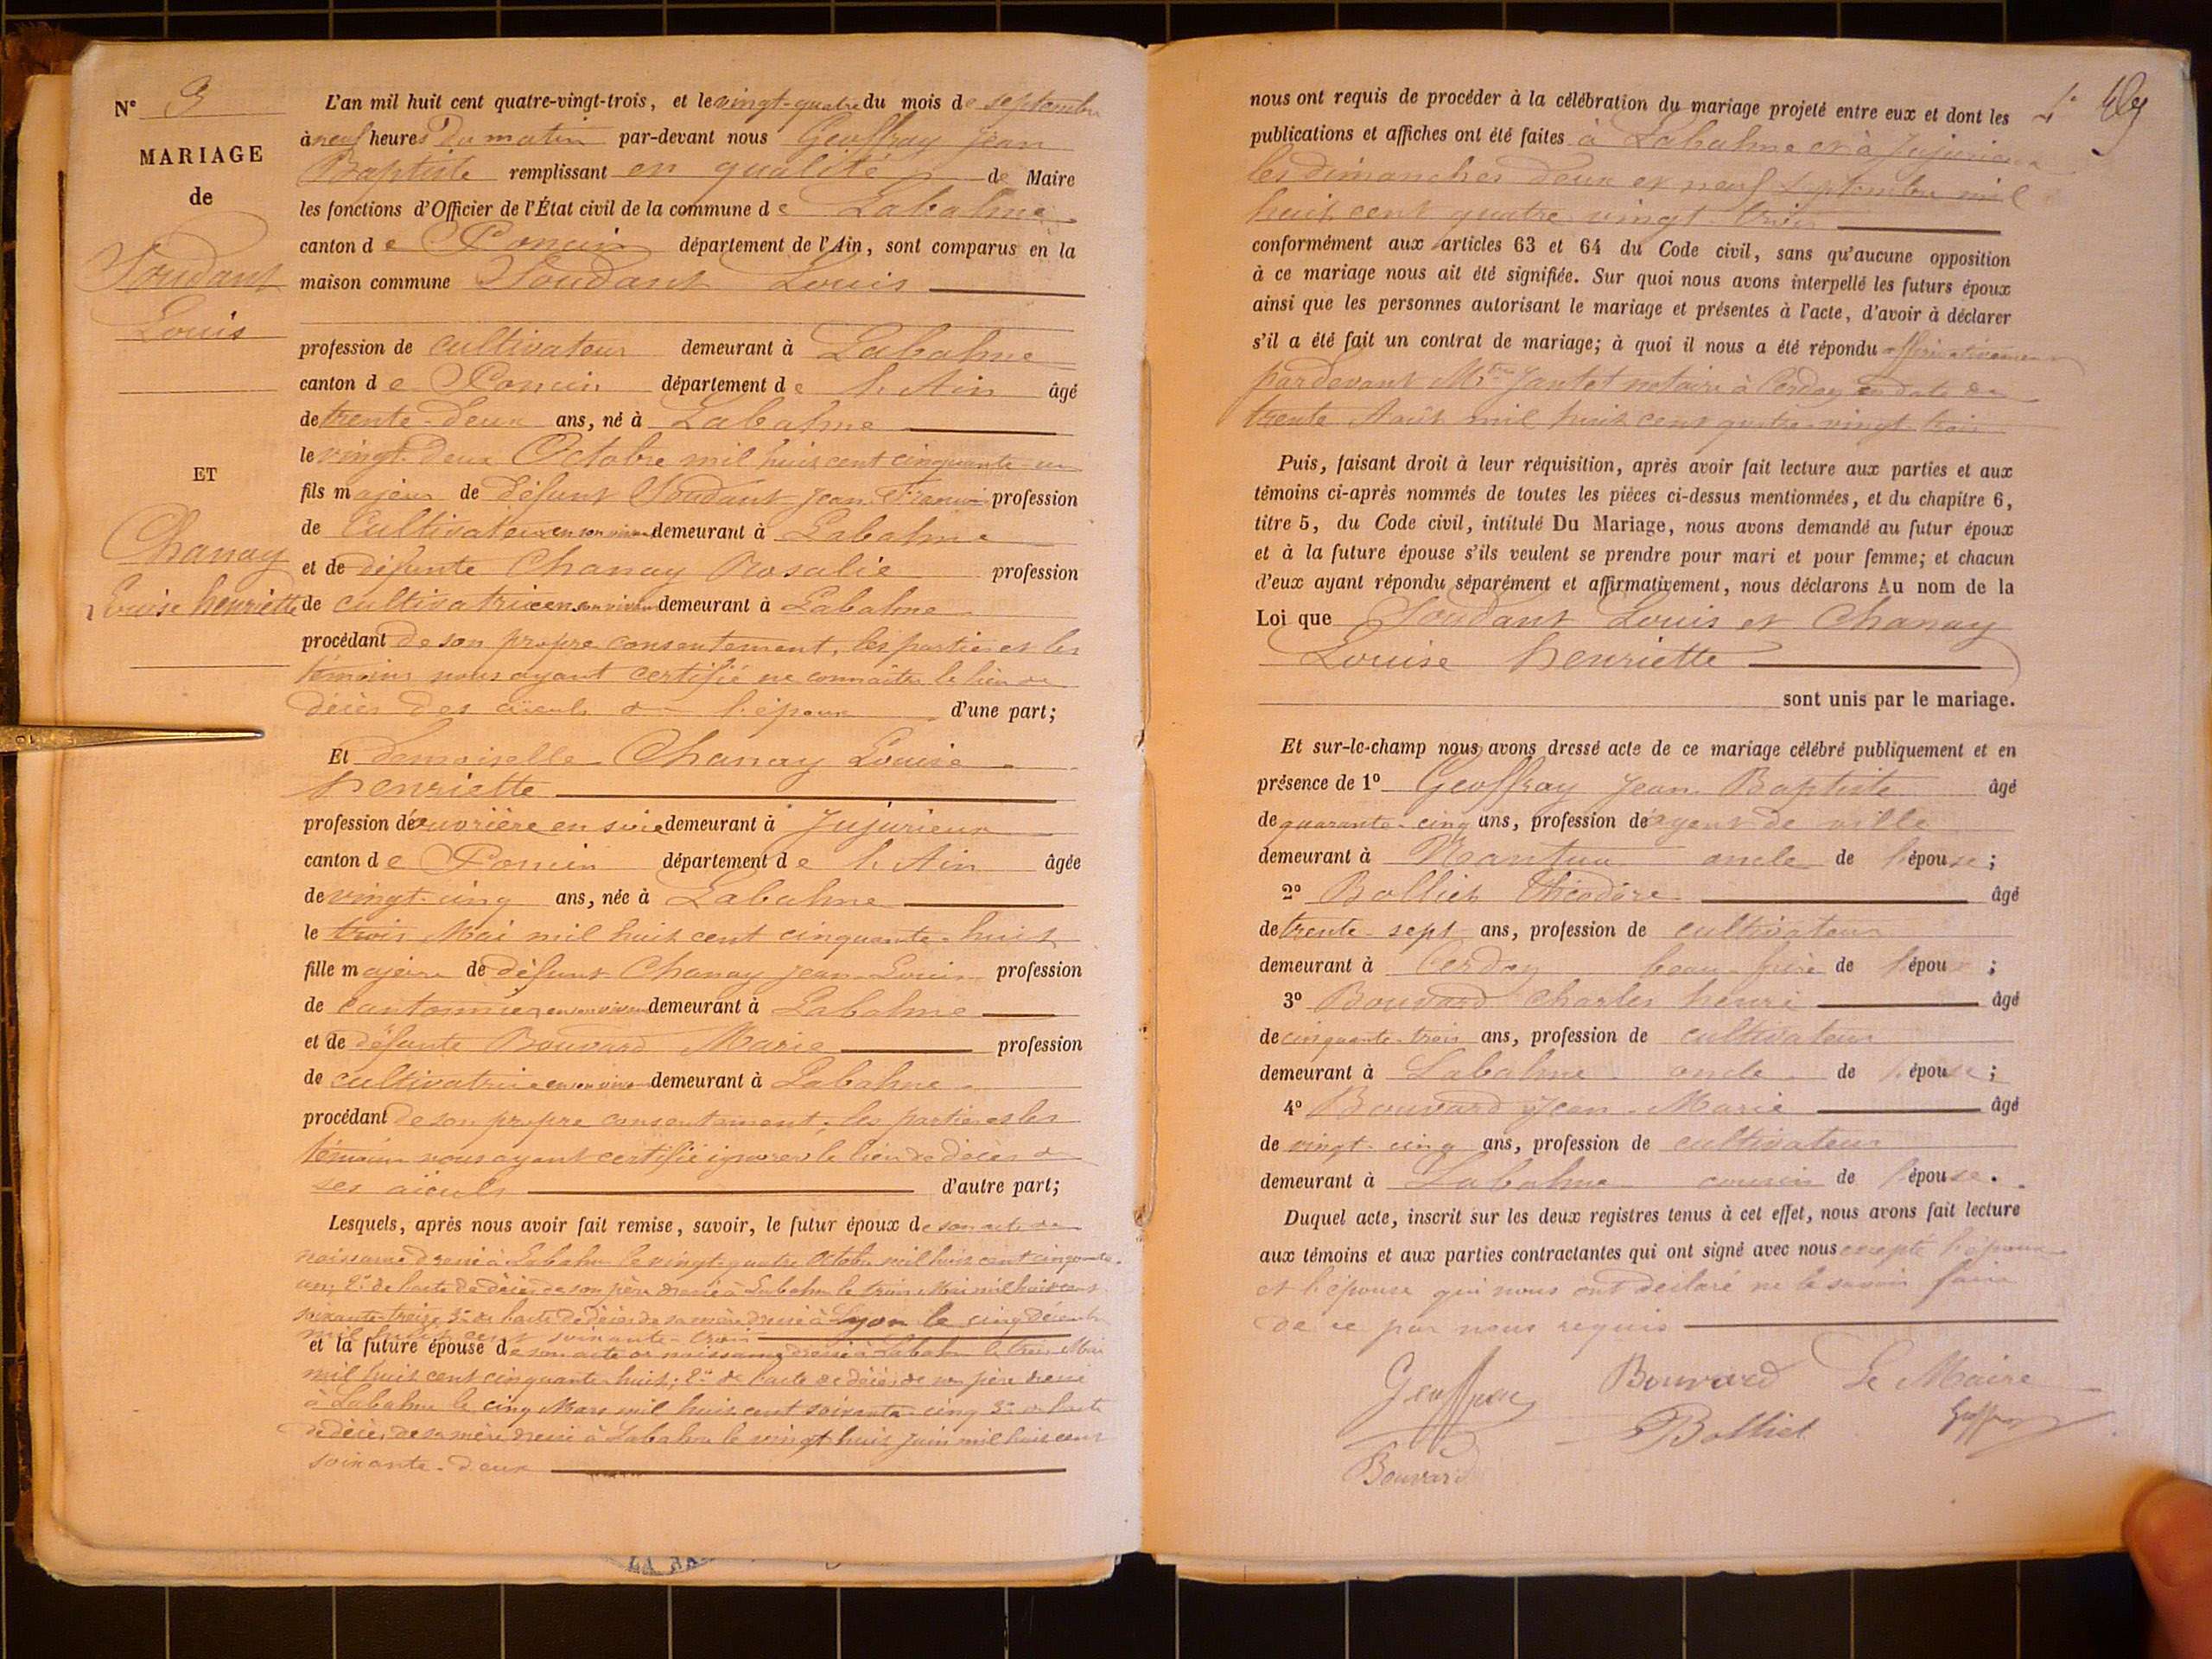 N° 3
MARIAGE
de
Soudant
Louis
ET
Chanay
Louise henriette
L'an mil huit cent quatre-vingt-trois, et le vingt-quatre du mois de septembre
à neuf heures du matin par-devant nous Geoffray Jean
Baptiste remplissant en qualité de Maire
les fonctions d'Officier de l'État civil de la commune de Labalme
canton de Poncin département de l'Ain, sont comparus en la
maison commune Soudant Louis
profession de cultivateur demeurant à Labalme
canton de Poncin département de l'Ain âgé
de trente-deux ans, né à Labalme
le vingt-deux Octobre mil huit cent cinquante-un
fils majeur de défunt Soudant Jean François profession
de Cultivateur en son vivant demeurant à Labalme
et de défunte Chanay Rosalie profession
de cultivatrice en son vivant demeurant à Labalme
procédant de son propre consentement, les parties et les
témoins nous ayant certifié ne connaître le lieu de
décès des aïeuls de l'époux d'une part;
Et demoiselle Chanay Louise
henriette
profession d'ouvrière en soie demeurant à Jujurieux
canton de Poncin département de l'Ain âgée
de vingt-cinq ans, née à Labalme
le trois Mai mil huit cent cinquante-huit
fille majeure de défunt Chanay Jean-Louis profession
de cantonnier en son vivant demeurant à Labalme
et de défunte Bouvard Marie profession
de cultivatrice en son vivant demeurant à Labalme
procédant de son propre consentement, les parties et les
témoins nous ayant certifié ignorer le lieu de décès de
ses aïeuls d'autre part;
Lesquels, après nous avoir fait remise, savoir, le futur époux de son acte de
naissance dressé à Labalme le vingt-quatre Octobre mil huit cent cinquante-
un; 2° de l'acte de décès de son père dressé à Labalme le trois Mai mil huit cent
soixante-treize 3° de l'acte de décès de sa mère dressé à Lyon le cinq décembre
mil huit cent soixante-trois
et la future épouse de son acte de naissance dressé à Labalme le trois Mai
mil huit cent cinquante-huit; 2° de l'acte de décès de son père dressé
à Labalme le cinq Mars mil huit cent soixante-cinq 3° de l'acte
de décès de sa mère dressé à Labalme le vingt huit Juin mil huit cent
soixante-deux
nous ont requis de procéder à la célébration du mariage projeté entre eux et dont les
publications et affiches ont été faites à Labalme et à Jujurieux
les dimanches deux et neuf Septembre mil
huit cent quatre-vingt-trois
conformément aux articles 63 et 64 du Code civil, sans qu'aucune opposition
à ce mariage nous ait été signifiée. Sur quoi nous avons interpellé les futurs époux
ainsi que les personnes autorisant le mariage et présentes à l'acte, d'avoir à déclarer
s'il a été fait un contrat de mariage; à quoi il nous a été répondu affirmativement
pardevant Mtre Jantet notaire à Cerdon en date du
trente Août mil huit cent quatre-vingt trois
Puis, faisant droit à leur réquisition, après avoir fait lecture aux parties et aux
témoins ci-après nommés de toutes les pièces ci-dessus mentionnées, et du chapitre 6,
titre 5, du Code civil, intitulé Du Mariage, nous avons demandé au futur époux
et à la future épouse s'ils veulent se prendre pour mari et pour femme; et chacun
d'eux ayant répondu séparément et affirmativement, nous déclarons Au nom de la
Loi que Soudant Louis et Chanay
Louise henriette
sont unis par le mariage.
Et sur-le-champ nous avons dressé acte de ce mariage célébré publiquement et en
présence de 1° Geoffray Jean Baptiste âgé
de quarante-cinq ans, profession d'agent de ville
demeurant à Nantua oncle de l'épouse;
2° Bolliet Théodore âgé
de trente-sept ans, profession de cultivateur
demeurant à Cerdon beau-frère de l'époux;
3° Bouvard Charles henri âgé
de cinquante-trois ans, profession de cultivateur
demeurant à Labalme oncle de l'épouse;
4° Bouvard Jean-Marie âgé
de vingt-cinq ans, profession de cultivateur
demeurant à Labalme cousin de l'épouse.
Duquel acte, inscrit sur les deux registres tenus à cet effet, nous avons fait lecture
aux témoins et aux parties contractantes qui ont signé avec nous excepté l'époux
et l'épouse qui nous ont déclaré ne le savoir faire
de ce par nous requis
Geoffray Bouvard Le Maire
Bolliet Geoffray
Bouvard